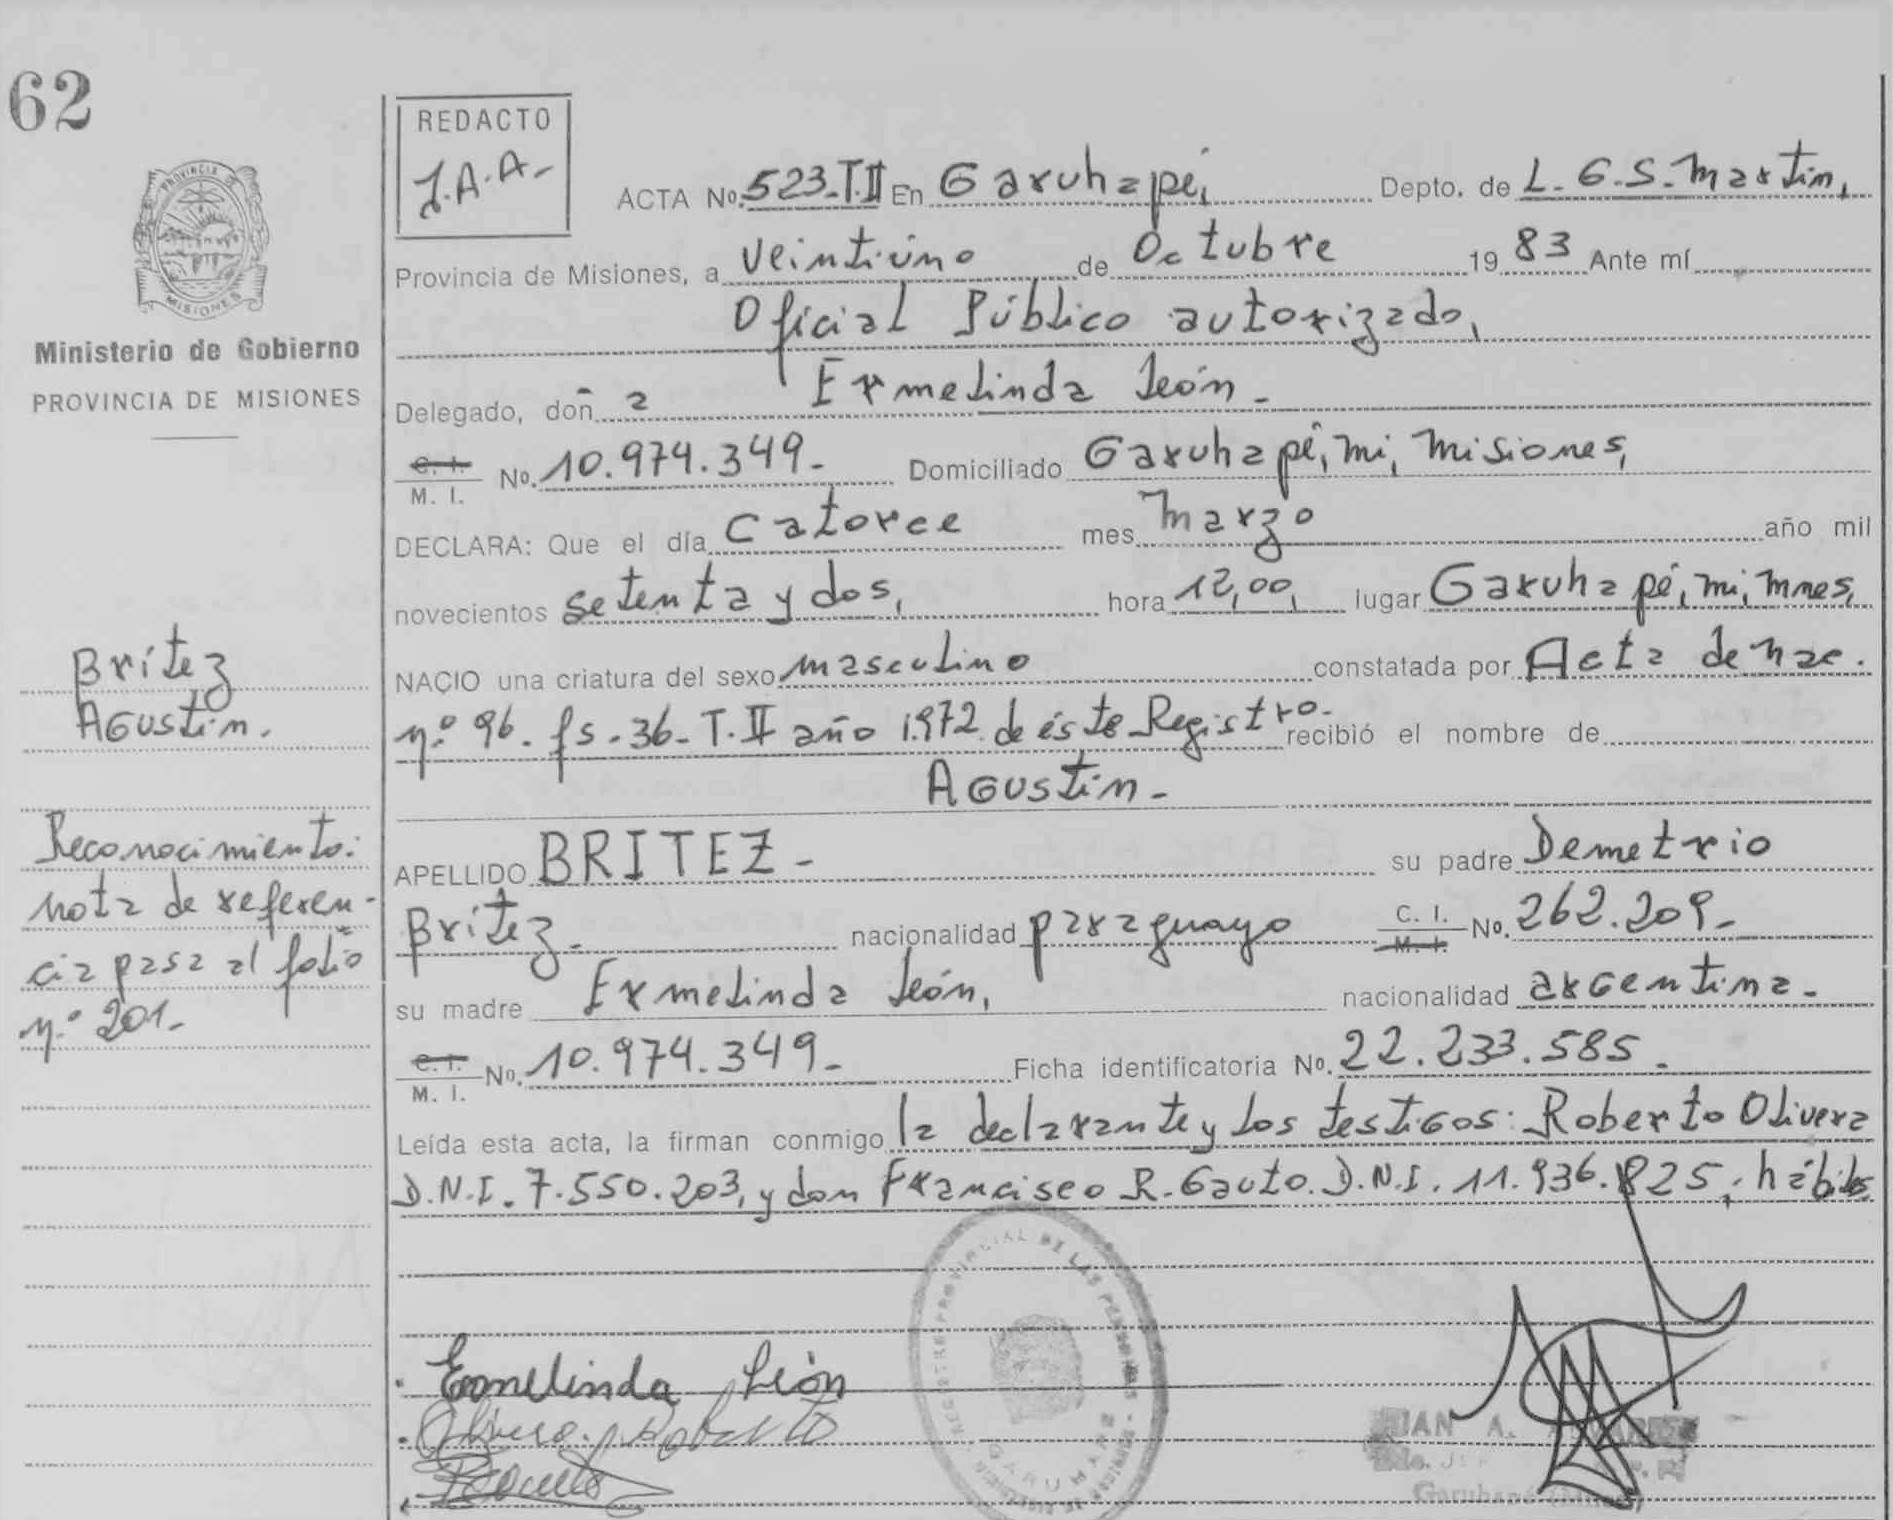 62
REDACTO
J.A.A-
PROVINCIA DE
MISIONES
Ministerio de Gobierno
PROVINCIA DE MISIONES
ACTA No. 523-T.II En Garuhapé, Depto. de L. G. S. Martin,
Provincia de Misiones, a veintiúno de Octubre 1983 Ante mí
Oficial Público autorizado,
Delegado, doña Ermelinda León.-
C. I. / M. I. No. 10.974.349.- Domiciliado Garuhapé, mi, Misiones,
DECLARA: Que el día Catorce mes Marzo año mil
novecientos setenta y dos, hora 12,00, lugar Garuhapé, mi, Mnes,
NACIO una criatura del sexo masculino constatada por Acta de Nac.
n.º 96. fs. 36- T. II año 1.972 de éste Registro.- recibió el nombre de
Agustin.-
APELLIDO BRITEZ.- su padre Demetrio
Britez.- nacionalidad paraguayo C. I. / M. I. No. 262.209.-
su madre Ermelinda León, nacionalidad argentina.-
C. I. / M. I. No. 10.974.349.- Ficha identificatoria No. 22.233.585.-
Leída esta acta, la firman conmigo la declarante y los testigos: Roberto Olivera
D.N.I. 7.550.203, y don Francisco R. Gauto. D.N.I. 11.936.825, hábiles
Brítez
Agustín.
Reconocimiento:
nota de referen-
cia pasa al folio
n.º 201.-
Ermelinda León
Olivera Roberto
REGISTRO PROVINCIAL DE LAS PERSONAS
JUAN A.
Garuhapé (Mnes)